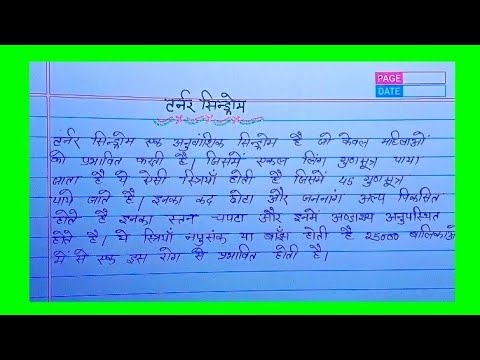 PAGE
DATE
टर्नर सिन्ड्रोम
टर्नर सिन्ड्रोम एक अनुवांशिक सिन्ड्रोम है जो केवल महिलाओं
को प्रभावित करती है। जिसमें एकल लिंग गुणसूत्र पाया
जाता है ये ऐसी स्त्रियाँ होती है जिसमें 45 गुणसूत्र
पाये जाते है। इनका कद छोटा और जननांग अल्प विकसित
होते है इनका स्तन चपटा और इनमें अण्डाशय अनुपस्थित
होते है। ये स्त्रियाँ नपूसंक या बाँझ होती है 25000 बालिकाओं
में से एक इस रोग से प्रभावित होती है।